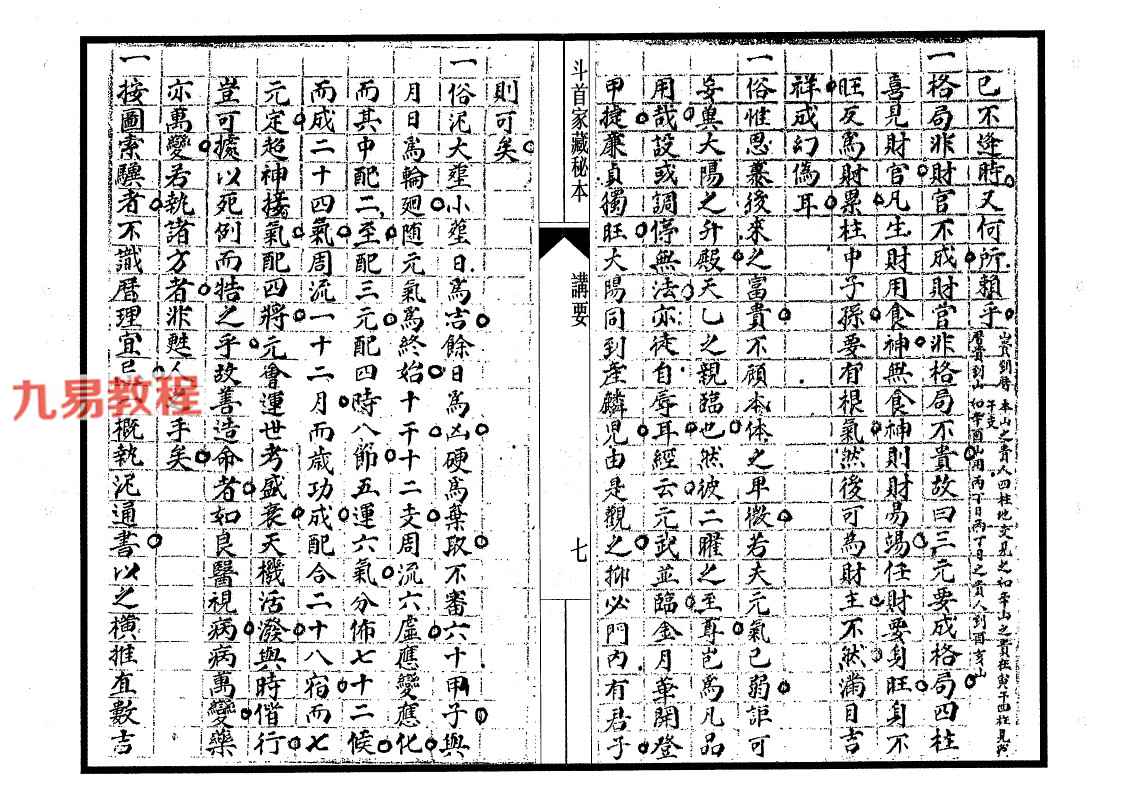 已不逢時又何所賴乎
一格局非財官不成財官非格局不貴故曰三元要成格局四柱
喜見財官凡生財用食神無食神則財易竭任財要身旺身不
旺反爲財累柱中子孫要有根氣然後可為財主不然滿目吉
祥成幻偽耳
一俗惟思慕後來之富貴不顧本体之卑微若夫元氣已弱詎可
妄與大陽之升殿天乙之親臨也然彼二曜之至尊豈爲凡品
用哉設或調停無法亦徒自辱耳經云元武並臨金月華開登
甲捷廉貞獨旺大陽同到產麟児由是觀之抑必門內有君子
斗首家藏秘本
講要
七
則可矣
一俗泥大墾小墾日爲吉餘日爲凶硬爲棄取不審六十甲子與
月日爲輪廻随元氣爲終始十干十二支周流六虛應變應化
而其中配二至配三元配四時八節五運六氣分佈七十二候
而成二十四氣周流一十二月而歲功成配合二十八宿而七
元定超神接氣配四將元會運世考盛衰天機活潑與時偕行
豈可據以死例而牿之乎故善造命者如良醫視病病萬變藥
亦萬變若執諸方者非甦人之手矣
一按圖索驥者不識曆理宜忌概執泥通書以之橫推直數吉
九易教程